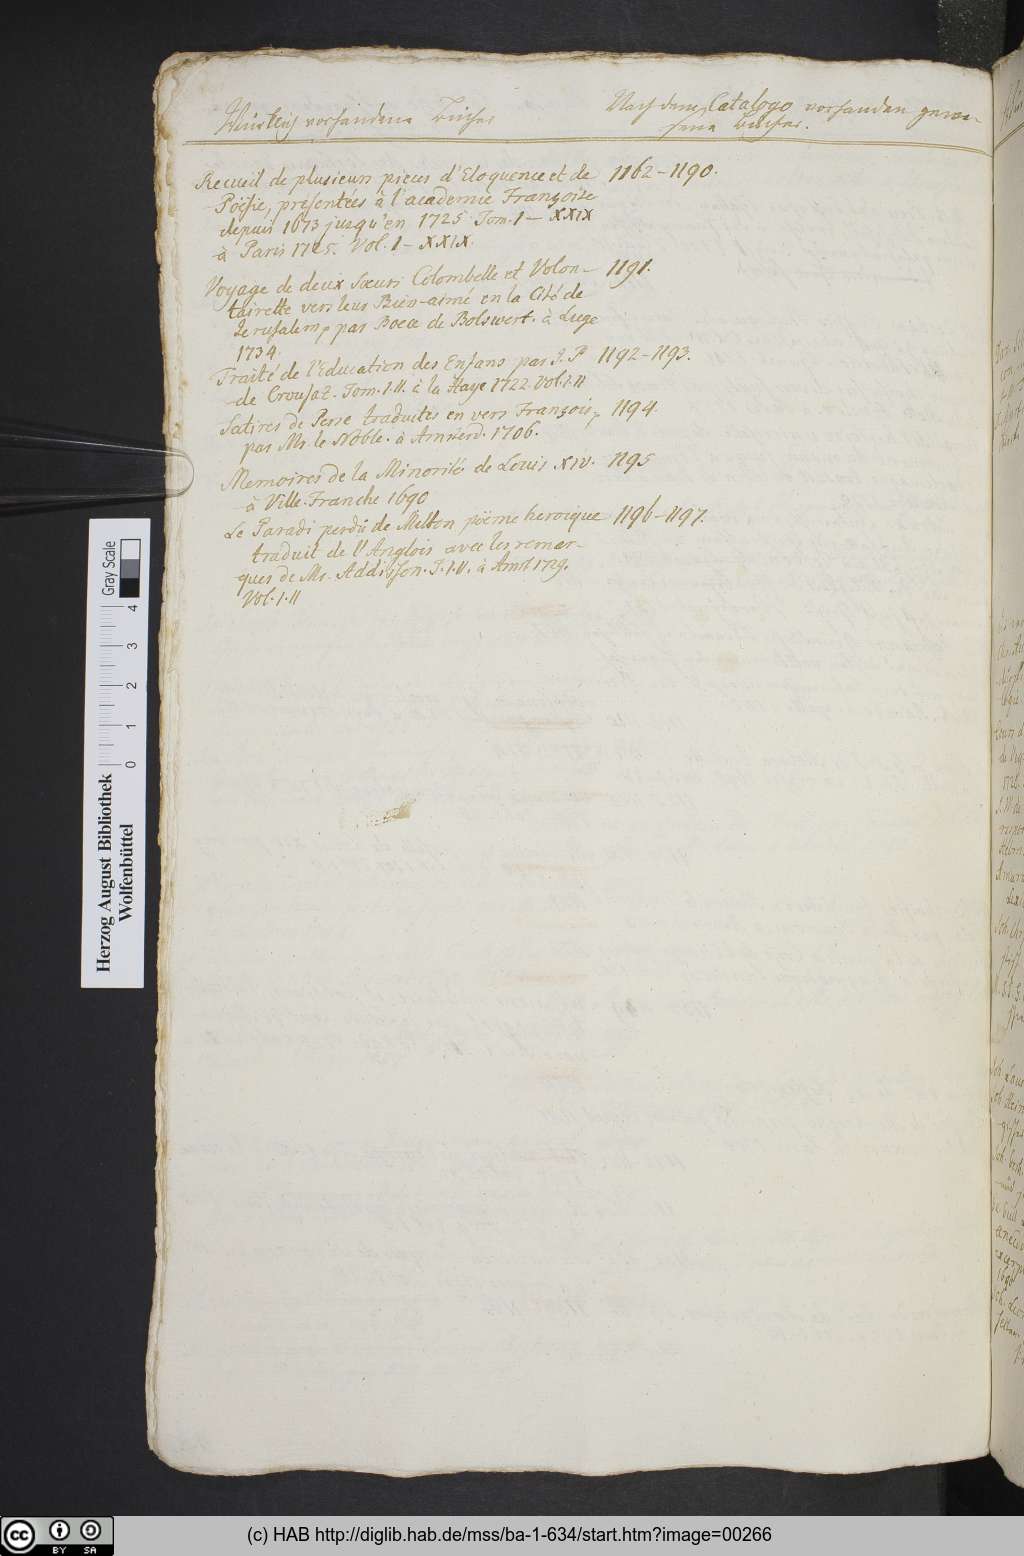 Würklich vorhandene Bücher
Nach dem Catalogo vorhanden gewe-
sene Bücher.
Recueil de plusieurs pieces d'Eloquence et de 1162–1190.
Poësie, présentées à l'academie Françoise
depuis 1673 jusqu'en 1725 Tom. I – XXIX
à Paris 1725. Vol. I – XXIX.
Voyage de deux Sœurs Colombelle et Volon- 1191.
tairette vers leur Bien-aimé en la Cité de
Jerusalem, par Boece de Bolswert. à Liege
1734.
Traité de l'Education des Enfans par J. P 1192–1193.
de Crousaz. Tom. I. II. à la Haye 1722. Vol. I. II
Satires de Perse traduites en vers François, 1194.
par Mr. le Noble. à Amsterd. 1706.
Memoires de la Minorité de Louis XIV. 1195
à Ville-Franche 1690
Le Paradi perdü de Milton poëme heroique 1196–1197.
traduit de l'Anglois avec les remar-
ques de Mr. Addisson. T. I. II. à Amst 1729.
Vol. I. II
Gray Scale
0 1 2 3 4
Herzog August Bibliothek
Wolfenbüttel
cc BY SA
(c) HAB http://diglib.hab.de/mss/ba-1-634/start.htm?image=00266